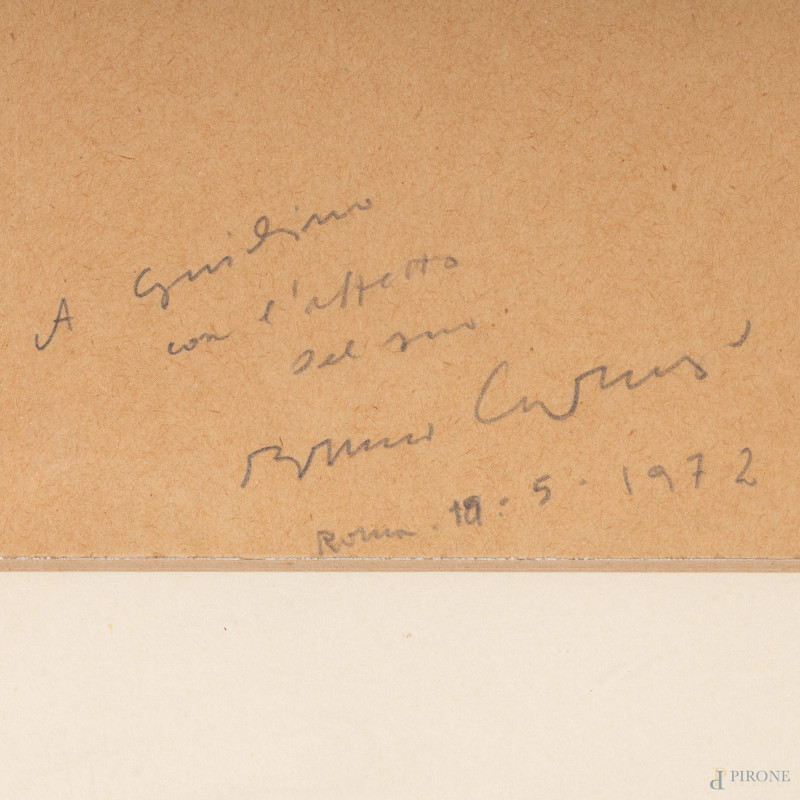 A Guidino
con l'affetto
del suo
Bruno Caruso
Roma . 19 . 5 . 1972
PIRONE